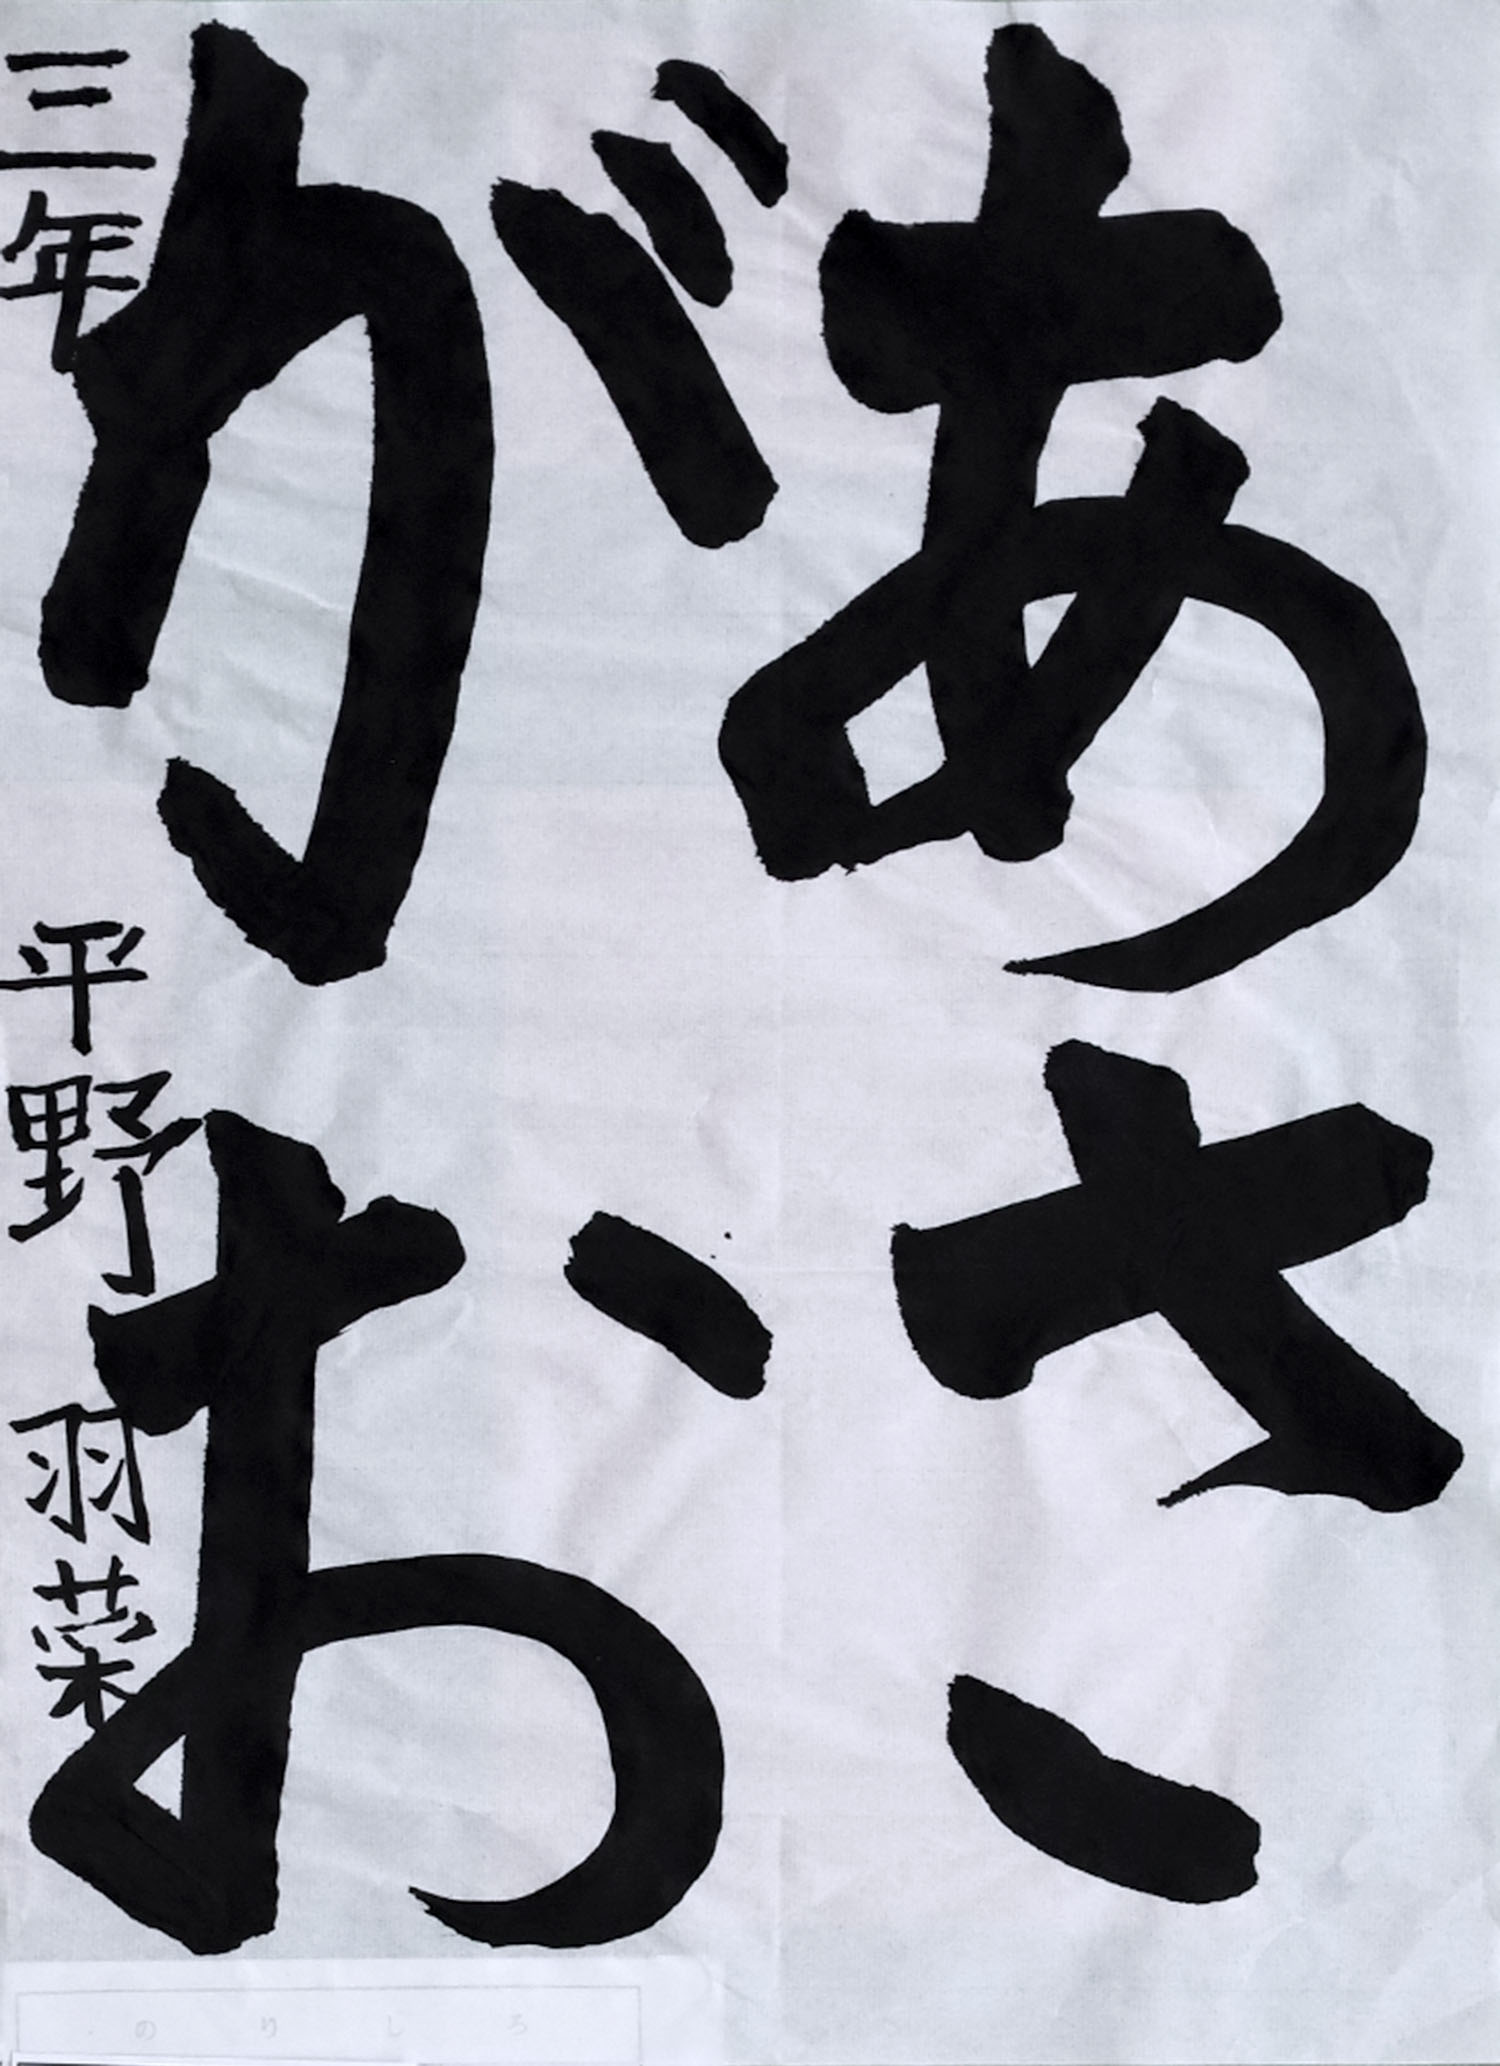 あさ
がお
三年 平野羽菜
のりしろ